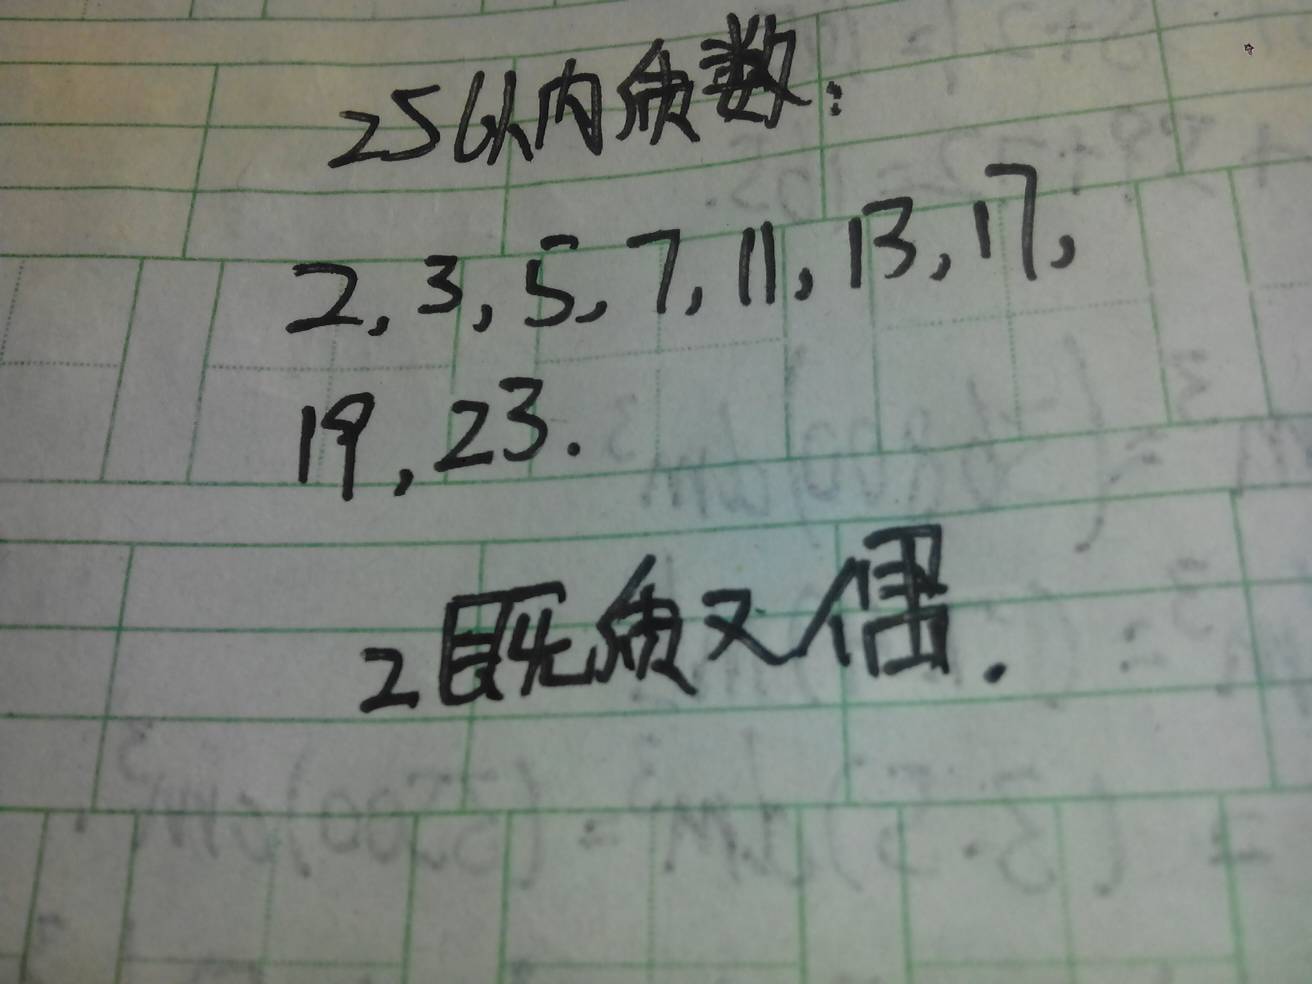 25以内质数:
2,3,5,7,11,13,17,
19,23.
2既质又偶.